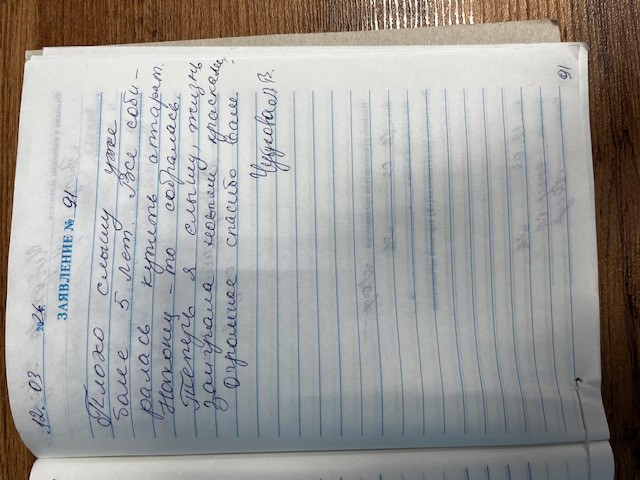 12. 03 2024
ЗАЯВЛЕНИЕ № 91
Плохо слышу уже
более 5 лет. Все соби-
ралась купить аппарат.
Наконец-то собралась.
Теперь я слышу, жизнь
заиграла новыми красками,
огромное спасибо вам.
91